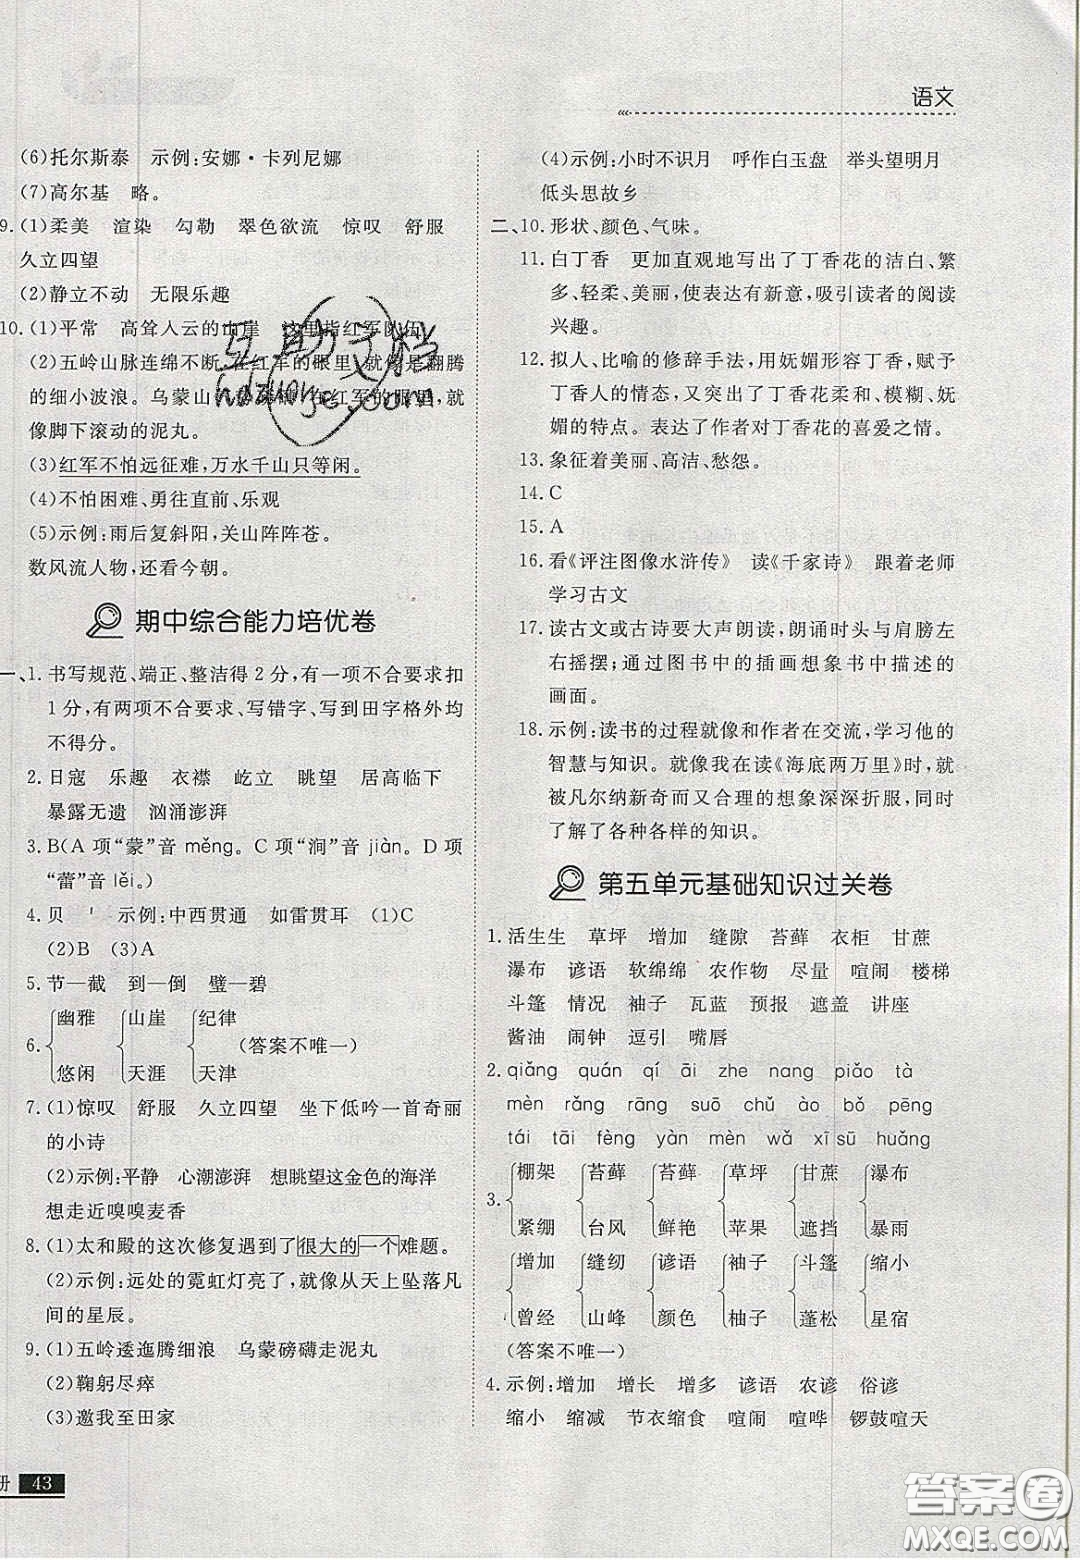 语文
(6)托尔斯泰　示例:安娜·卡列尼娜
(7)高尔基　略。
9. (1)柔美　渲染　勾勒　翠色欲流　惊叹　舒服
久立四望
(2)静立不动　无限乐趣
10. (1)平常　高耸入云的山崖　这里指红军队伍
(2)五岭山脉连绵不断,在红军的眼里,就像是翻腾
的细小波浪。乌蒙山气势磅礴,在红军的眼里,就
像脚下滚动的泥丸。
(3)红军不怕远征难,万水千山只等闲。
(4)不怕困难、勇往直前、乐观
(5)示例:雨后复斜阳,关山阵阵苍。
数风流人物,还看今朝。
期中综合能力培优卷
一、1. 书写规范、端正、整洁得 2 分,有一项不合要求扣
1 分,有两项不合要求、写错字、写到田字格外均
不得分。
2. 日寇　乐趣　衣襟　屹立　眺望　居高临下
暴露无遗　汹涌澎湃
3. B(A 项“蒙”音 měng。C 项“涧”音 jiàn。D 项
“蕾”音 lěi。)
4. 贝　'　示例:中西贯通　如雷贯耳　(1)C
(2)B　(3)A
5. 节—截　到—倒　璧—碧
幽雅　山崖　纪律
6.　(答案不唯一)
悠闲　天涯　天津
7. (1)惊叹　舒服　久立四望　坐下低吟一首奇丽
的小诗
(2)示例:平静　心潮澎湃　想眺望这金色的海洋
想走近嗅嗅麦香
8. (1)太和殿的这次修复遇到了很大的一个难题。
(2)示例:远处的霓虹灯亮了,就像从天上坠落凡
间的星辰。
9. (1)五岭逶迤腾细浪　乌蒙磅礴走泥丸
(2)鞠躬尽瘁
(3)邀我至田家
册 43
(4)示例:小时不识月　呼作白玉盘　举头望明月
低头思故乡
二、10. 形状、颜色、气味。
11. 白丁香　更加直观地写出了丁香花的洁白、繁
多、轻柔、美丽,使表达有新意,吸引读者的阅读
兴趣。
12. 拟人、比喻的修辞手法,用妩媚形容丁香,赋予
丁香人的情态,又突出了丁香花的柔和、模糊、妩
媚的特点。表达了作者对丁香花的喜爱之情。
13. 象征着美丽、高洁、愁怨。
14. C
15. A
16. 看《评注图像水浒传》　读《千家诗》　跟着老师
学习古文
17. 读古文或古诗要大声朗读,朗诵时头与肩膀左
右摇摆;通过图书中的插画想象书中描述的
画面。
18. 示例:读书的过程就像和作者在交流,学习他的
智慧与知识。就像我在读《海底两万里》时,就
被凡尔纳新奇而又合理的想象深深折服,同时
了解了各种各样的知识。
第五单元基础知识过关卷
1. 活生生　草坪　增加　缝隙　苔藓　衣柜　甘蔗
瀑布　谚语　软绵绵　农作物　尽量　喧闹　楼梯
斗篷　情况　袖子　瓦蓝　预报　遮盖　讲座
酱油　闹钟　逗引　嘴唇
2. qiǎng　quán　qí　āi　zhe　nang　piǎo　tà
mèn　rǎng　rāng　suō　chǔ　ào　bǒ　pēng
tái　tāi　fèng　yàn　mèn　wǎ　xī sū　huǎng
棚架　苔藓　苔藓　草坪　甘蔗　瀑布
3.
紧绷　台风　鲜艳　苹果　遮挡　暴雨
增加　缝纫　谚语　袖子　斗篷　缩小
曾经　山峰　颜色　柚子　蓬松　星宿
(答案不唯一)
4. 示例:增加　增长　增多　谚语　农谚　俗谚
缩小　缩减　节衣缩食　喧闹　喧哗　锣鼓喧天
互助文档
hdzuoye.com
答案圈
MXQE.COM